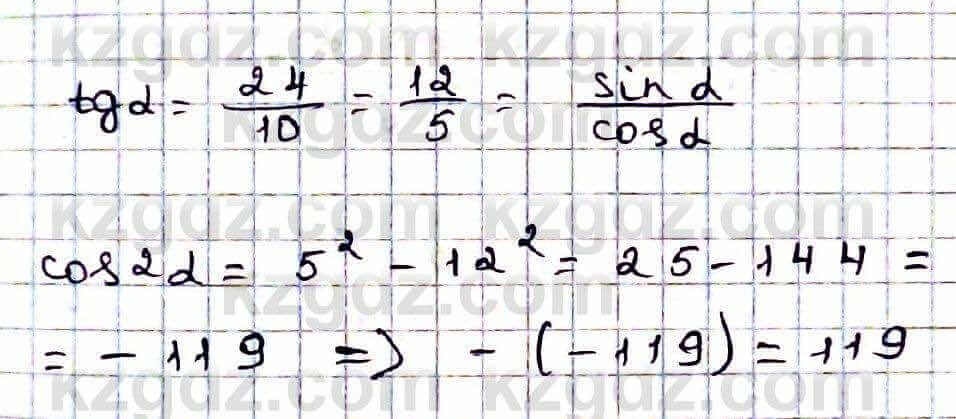 kzgdz.com kzgdz.com
tg α = 24/10 = 12/5 = sin α / cos α
kzgdz.com
kzgdz.com kzgdz.com
cos2α = 5² - 12² = 25 - 144 =
kzgdz.com
= - 119 => - (-119) = 119
kzgdz.com kzgdz.com